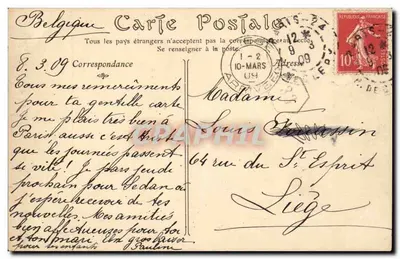 Belgique
Carte Postale
Tous les pays étrangers n'acceptent pas la correspondance
Se renseigner à la poste.
8.3.09 Correspondance
Adresse
PARIS
12
9 3
09
1-2
10-MARS
09
10
Tous mes remerciments
pour ta gentille carte
Je me plais très bien à
Paris aussi c'est
que les journées passent
si vite! Je pars jeudi
prochain pour Sedan où
j'espère recevoir de tes
nouvelles. Mes amitiés
bien affectueuses pour toi
et ton mari
pour les enfants Pauline
Madame
Louis
64 rue du St Esprit
Liège